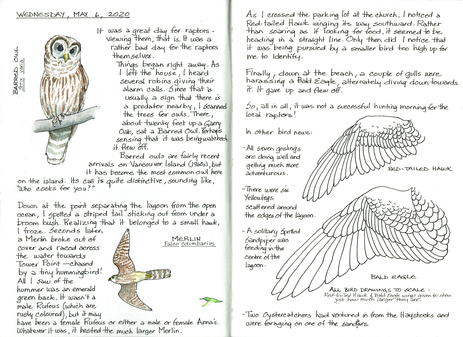 WEDNESDAY, MAY 6, 2020
It was a great day for raptors -
viewing them, that is. It was a
rather bad day for the raptors
themselves.
Things began right away. As
I left the house, I heard
several robins giving their
alarm calls. Since that is
usually a sign that there is
a predator nearby, I scanned
the trees for owls. There,
about twenty feet up a Garry
Oak, sat a Barred Owl. Perhaps
sensing that it was being watched,
it flew off.
Barred owls are fairly recent
arrivals on Vancouver Island (1960s), but
it has become the most common owl here
on the island. Its call is quite distinctive, sounding like,
"who cooks for you?"
BARRED OWL
Strix varia
Down at the point separating the lagoon from the open
ocean, I spotted a striped tail sticking out from under a
broom bush. Realizing that it belonged to a small hawk,
I froze. Seconds later,
a Merlin broke out of
cover and raced across
the water towards
Tower Point - chased
by a tiny hummingbird!
All I saw of the
hummer was an emerald
green back. It wasn't a
male Rufous (which are
rusty coloured), but it may
have been a female Rufous or either a male or female Anna's.
Whatever it was, it bested the much larger Merlin.
MERLIN
Falco columbarius
As I crossed the parking lot at the church, I noticed a
Red-tailed Hawk winging its way southward. Rather
than soaring as if looking for food, it seemed to be
heading in a straight line. Only then did I notice that
it was being pursued by a smaller bird too high up for
me to identify.
Finally, down at the beach, a couple of gulls were
harassing a Bald Eagle, alternately diving down towards
it. It gave up and flew off.
So, all in all, it was not a successful hunting morning for the
local raptors!
In other bird news:
-All seven goslings
are doing well and
getting much more
adventurous.
-There were six
Yellowlegs
scattered around
the edges of the lagoon.
-A solitary Spotted
Sandpiper was
feeding in the
centre of the
lagoon.
RED-TAILED HAWK
BALD EAGLE
ALL BIRD DRAWINGS TO SCALE -
Red-tailed Hawk & Bald Eagle wings given to show
just how much larger they are.
-Two Oystercatchers had ventured in from the Haystocks and
were foraging on one of the sandbars.